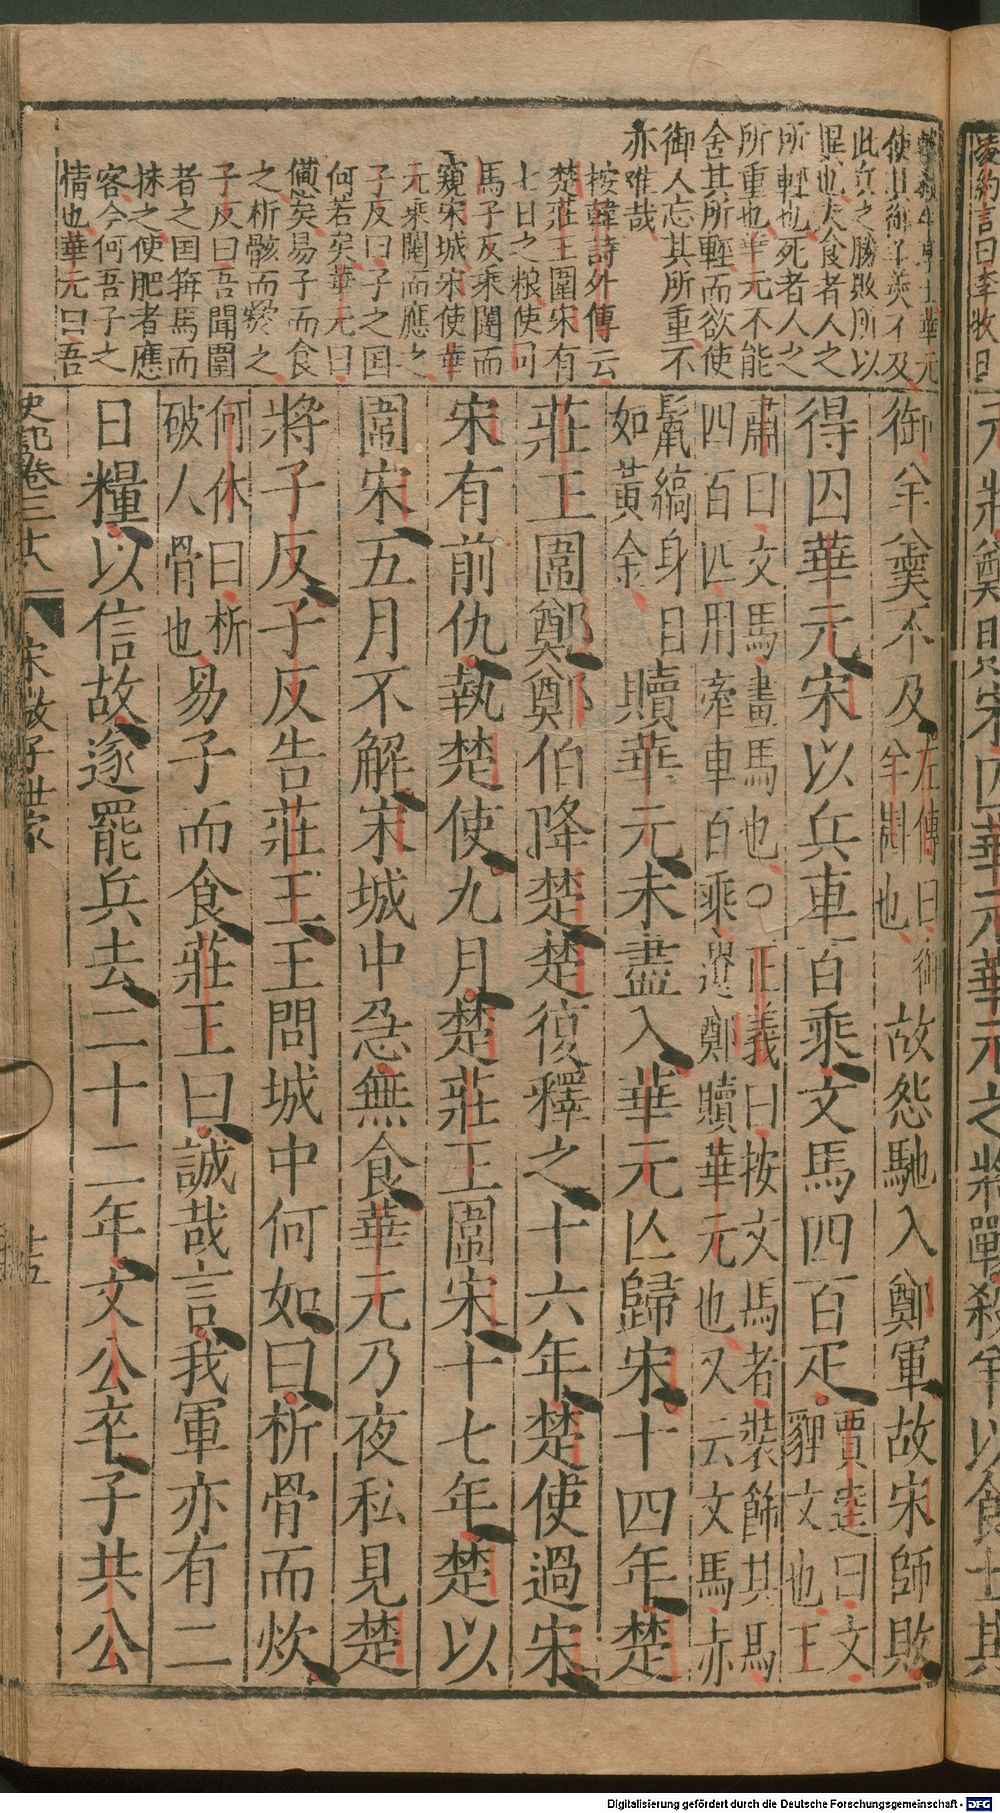 使其御羊羹不及
此兵之勝敗所以
異也夫食者人之
所輕也死者人之
所重也華元不能
舍其所輕而欲使
御人忘其所重不
亦唯哉
按韓詩外傳云
楚莊王圍宋有
七日之粮使司
馬子反乘闉而
窺宋城宋使華
元乘闉而應之
子反曰子之国
何若矣華元曰
憊矣易子而食
之析骸而爨之
子反曰吾聞圍
者之国箝馬而
抹之使肥者應
客今何吾子之
情也華元曰吾
御羊羹不及左傳曰御羊斟也故怨馳入鄭軍故宋師敗
得囚華元宋以兵車百乘文馬四百疋賈逵曰文貍文也王
肅曰文馬畫馬也○正義曰按文馬者裝飾其馬
四百匹用牽車百乘遺鄭贖華元也又云文馬赤
鬣縞身目如黃金贖華元未盡入華元亾歸宋十四年楚
莊王圍鄭鄭伯降楚楚復釋之十六年楚使過宋
宋有前仇執楚使九月楚莊王圍宋十七年楚以
圍宋五月不解宋城中急無食華元乃夜私見楚
將子反子反告莊王王問城中何如曰析骨而炊
何休曰析破人骨也易子而食莊王曰誠哉言我軍亦有二
日糧以信故遂罷兵去二十二年文公卒子共公
史記卷三十八
宋微子世家
十五
Digitalisierung gefördert durch die Deutsche Forschungsgemeinschaft - DFG